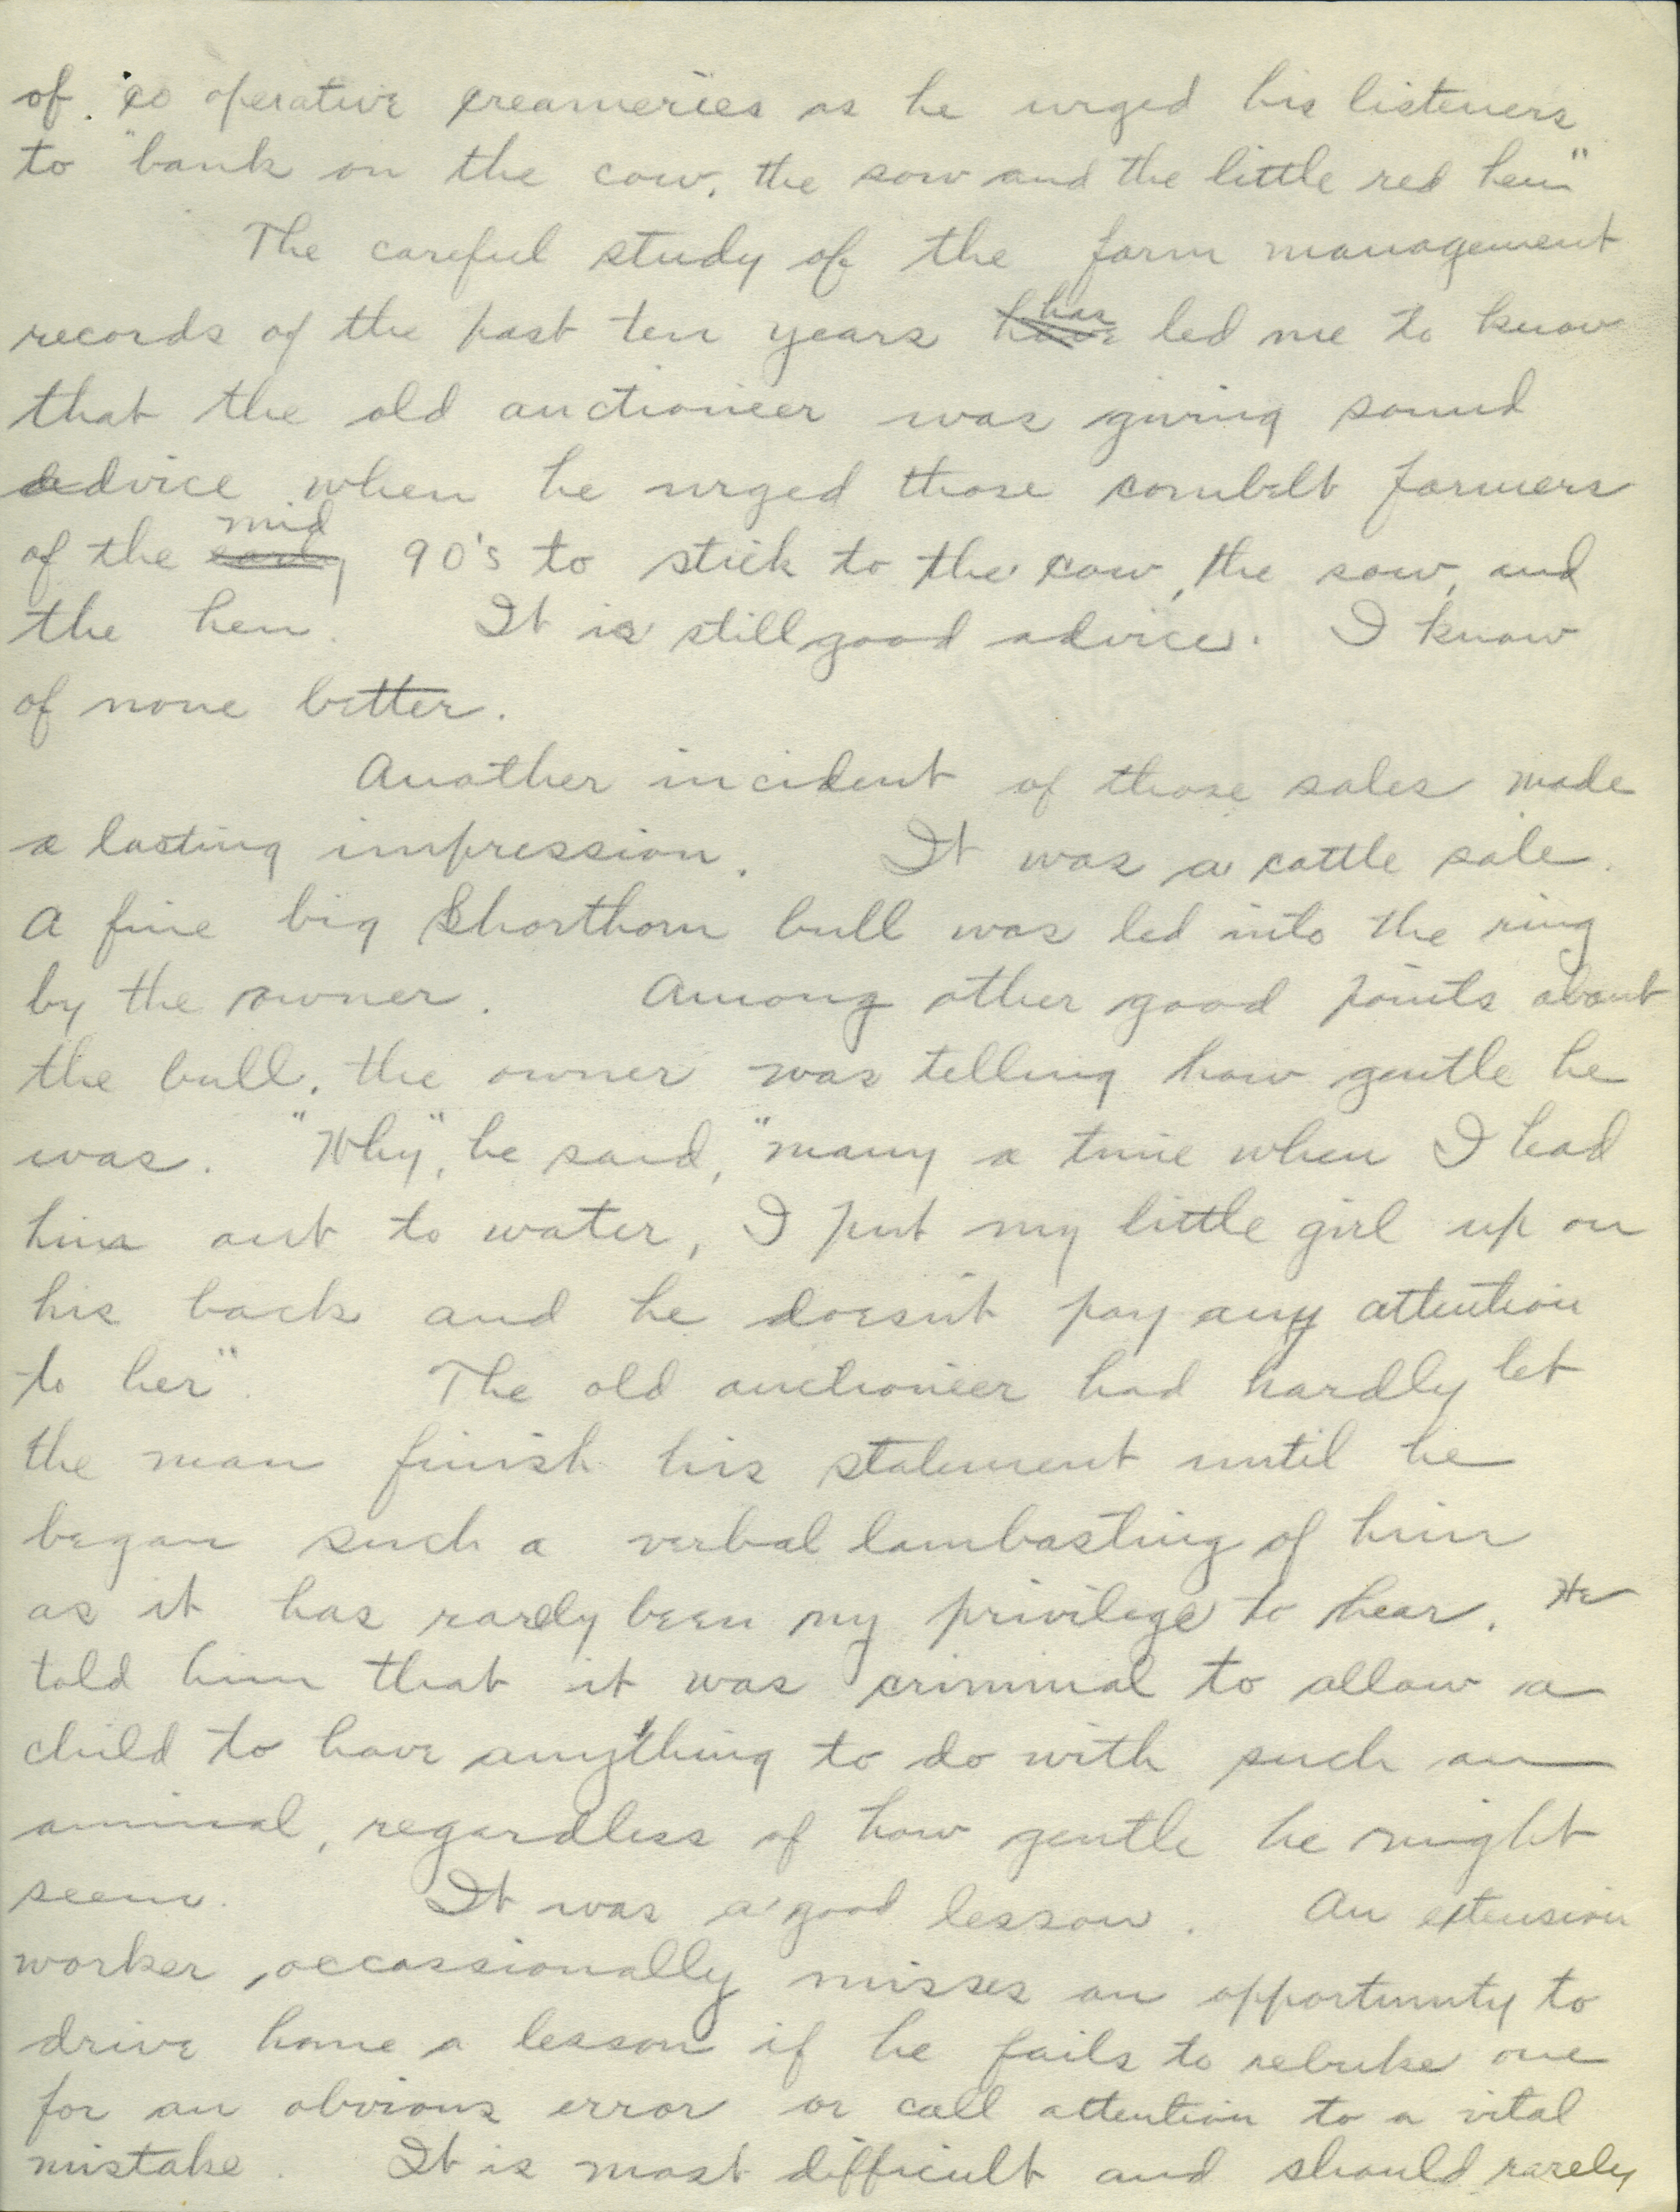 of co operative creameries as he urged his listeners
to "bank on the cow, the sow and the little red hen"
The careful study of the farm management
records of the past ten years ~~have~~ has led me to know
that the old auctioneer was giving sound
advice when he urged those cornbelt farmers
of the ~~early~~ mid 90's to stick to the cow, the sow, and
the hen. It is still good advice. I know
of none better.
Another incident of those sales made
a lasting impression. It was a cattle sale.
A fine big Shorthorn bull was led into the ring
by the owner. Among other good points about
the bull, the owner was telling how gentle he
was. "Why", he said, "many a time when I lead
him out to water, I put my little girl up on
his back and he doesn't pay any attention
to her". The old auctioneer had hardly let
the man finish his statement until he
began such a verbal lambasting of him
as it has rarely been my privilege to hear. He
told him that it was criminal to allow a
child to have anything to do with such an
animal, regardless of how gentle he might
seem. It was a good lesson. An extension
worker, occassionally misses an opportunity to
drive home a lesson if he fails to rebuke one
for an obvious error or call attention to a vital
mistake. It is most difficult and should rarely